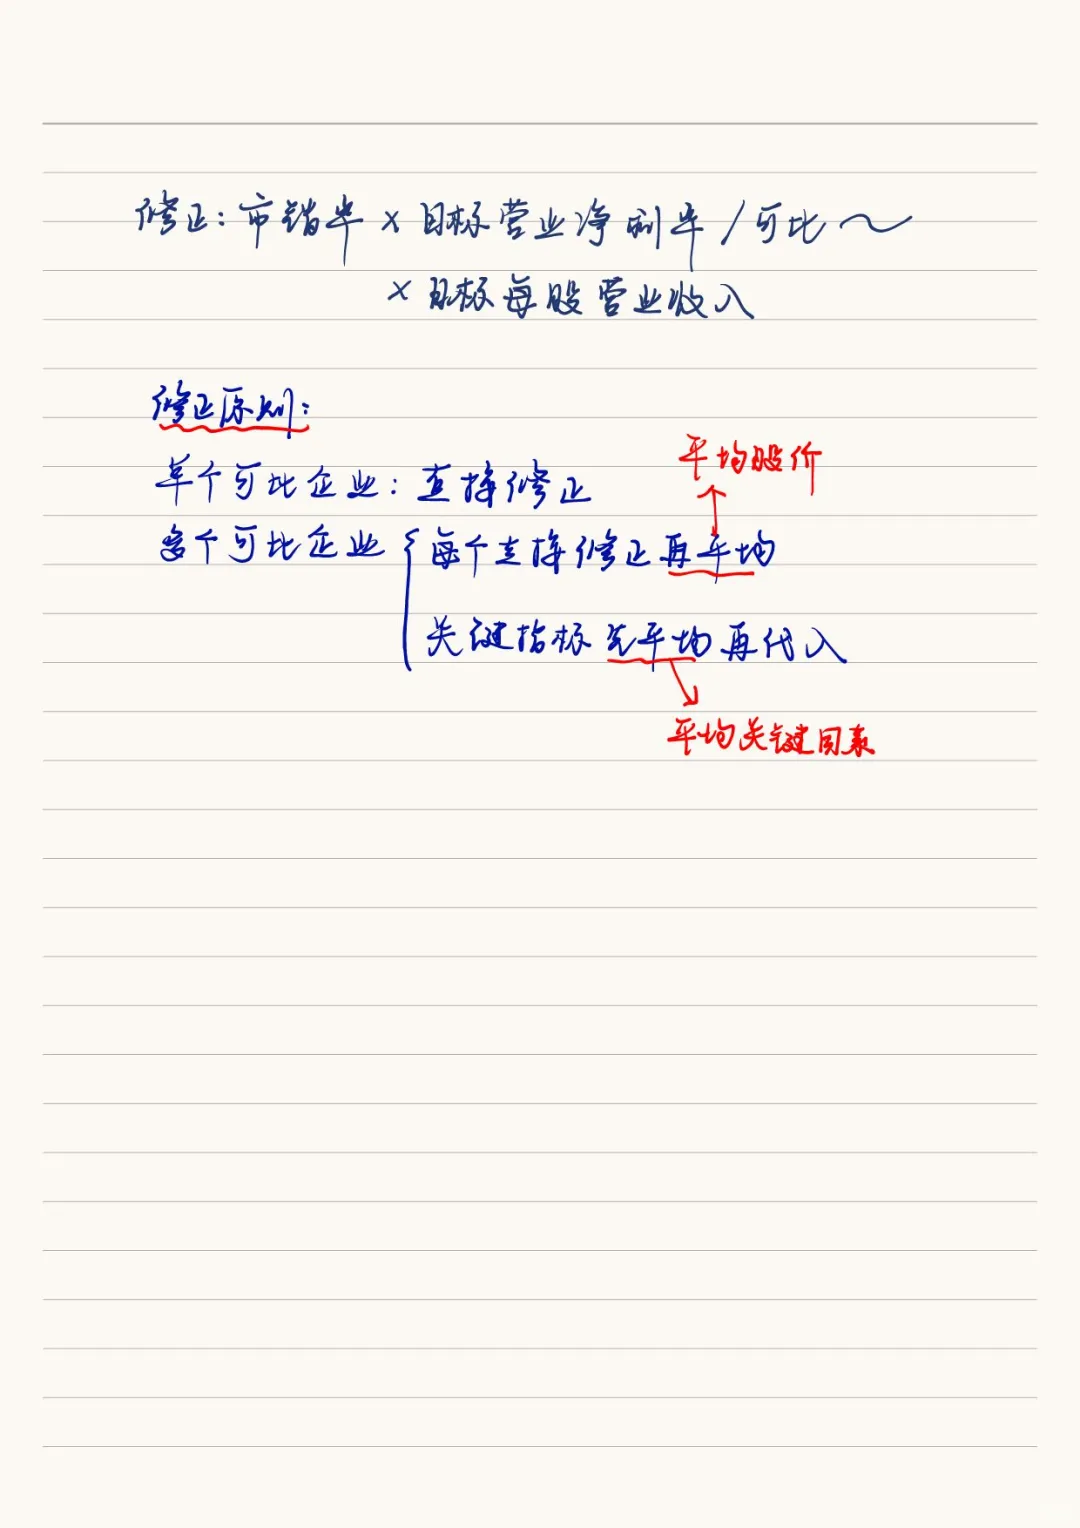 修正：市销率×目标营业净利率/可比～
×目标每股营业收入
修正原则：
单个可比企业：直接修正
平均股价
多个可比企业{每个直接修正再平均
关键指标先平均再代入
平均关键因素